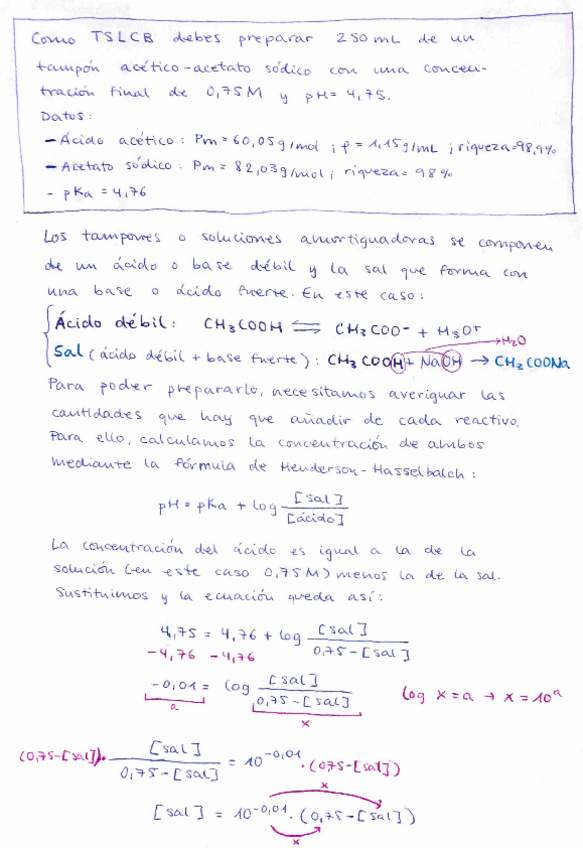 Como TSLCB debes preparar 250 mL de un
tampón acético-acetato sódico con una concen-
tración final de 0,75M y pH= 4,75.
Datos:
- Ácido acético: Pm=60,05g/mol; ρ=1,15g/mL; riqueza=98,9%
- Acetato sódico: Pm= 82,03g/mol; riqueza= 98%
- pKa = 4,76
Los tampones o soluciones amortiguadoras se componen
de un ácido o base débil y la sal que forma con
una base o ácido fuerte. En este caso:
Ácido débil: CH3COOH ⇌ CH3COO- + H3O+
H2O
Sal (ácido débil + base fuerte): CH3COOH + NaOH → CH3COONa
Para poder prepararlo, necesitamos averiguar las
cantidades que hay que añadir de cada reactivo.
Para ello, calculamos la concentración de ambos
mediante la fórmula de Henderson-Hasselbalch:
pH = pKa + log [sal]/[ácido]
La concentración del ácido es igual a la de la
solución (en este caso 0,75M) menos la de la sal.
Sustituimos y la ecuación queda así:
4,75 = 4,76 + log [sal]/0,75-[sal]
-4,76 -4,76
-0,01 = log [sal]/0,75-[sal] log x = a → x = 10^a
a x
(0,75-[sal])· [sal]/0,75-[sal] = 10^-0,01 ·(0,75-[sal])
x
[sal] = 10^-0,01 · (0,75-[sal])
x